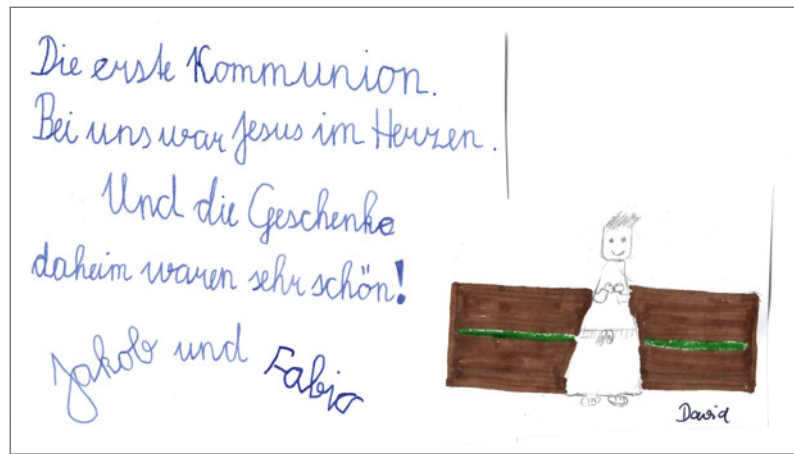 Die erste Kommunion.
Bei uns war Jesus im Herzen.
Und die Geschenke
daheim waren sehr schön!
Jakob und Fabio
David